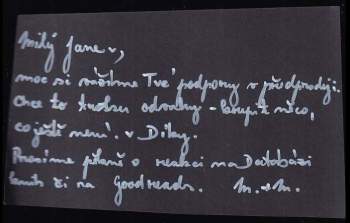 Milý Jane ♥,
moc si vážíme Tvé podpory v předprodeji.
Chce to trochu odvahy - koupit něco,
co ještě není. ♥ Díky.
Prosíme pěkně o reakci na Databázi
knih či na Goodreads. M. + M.